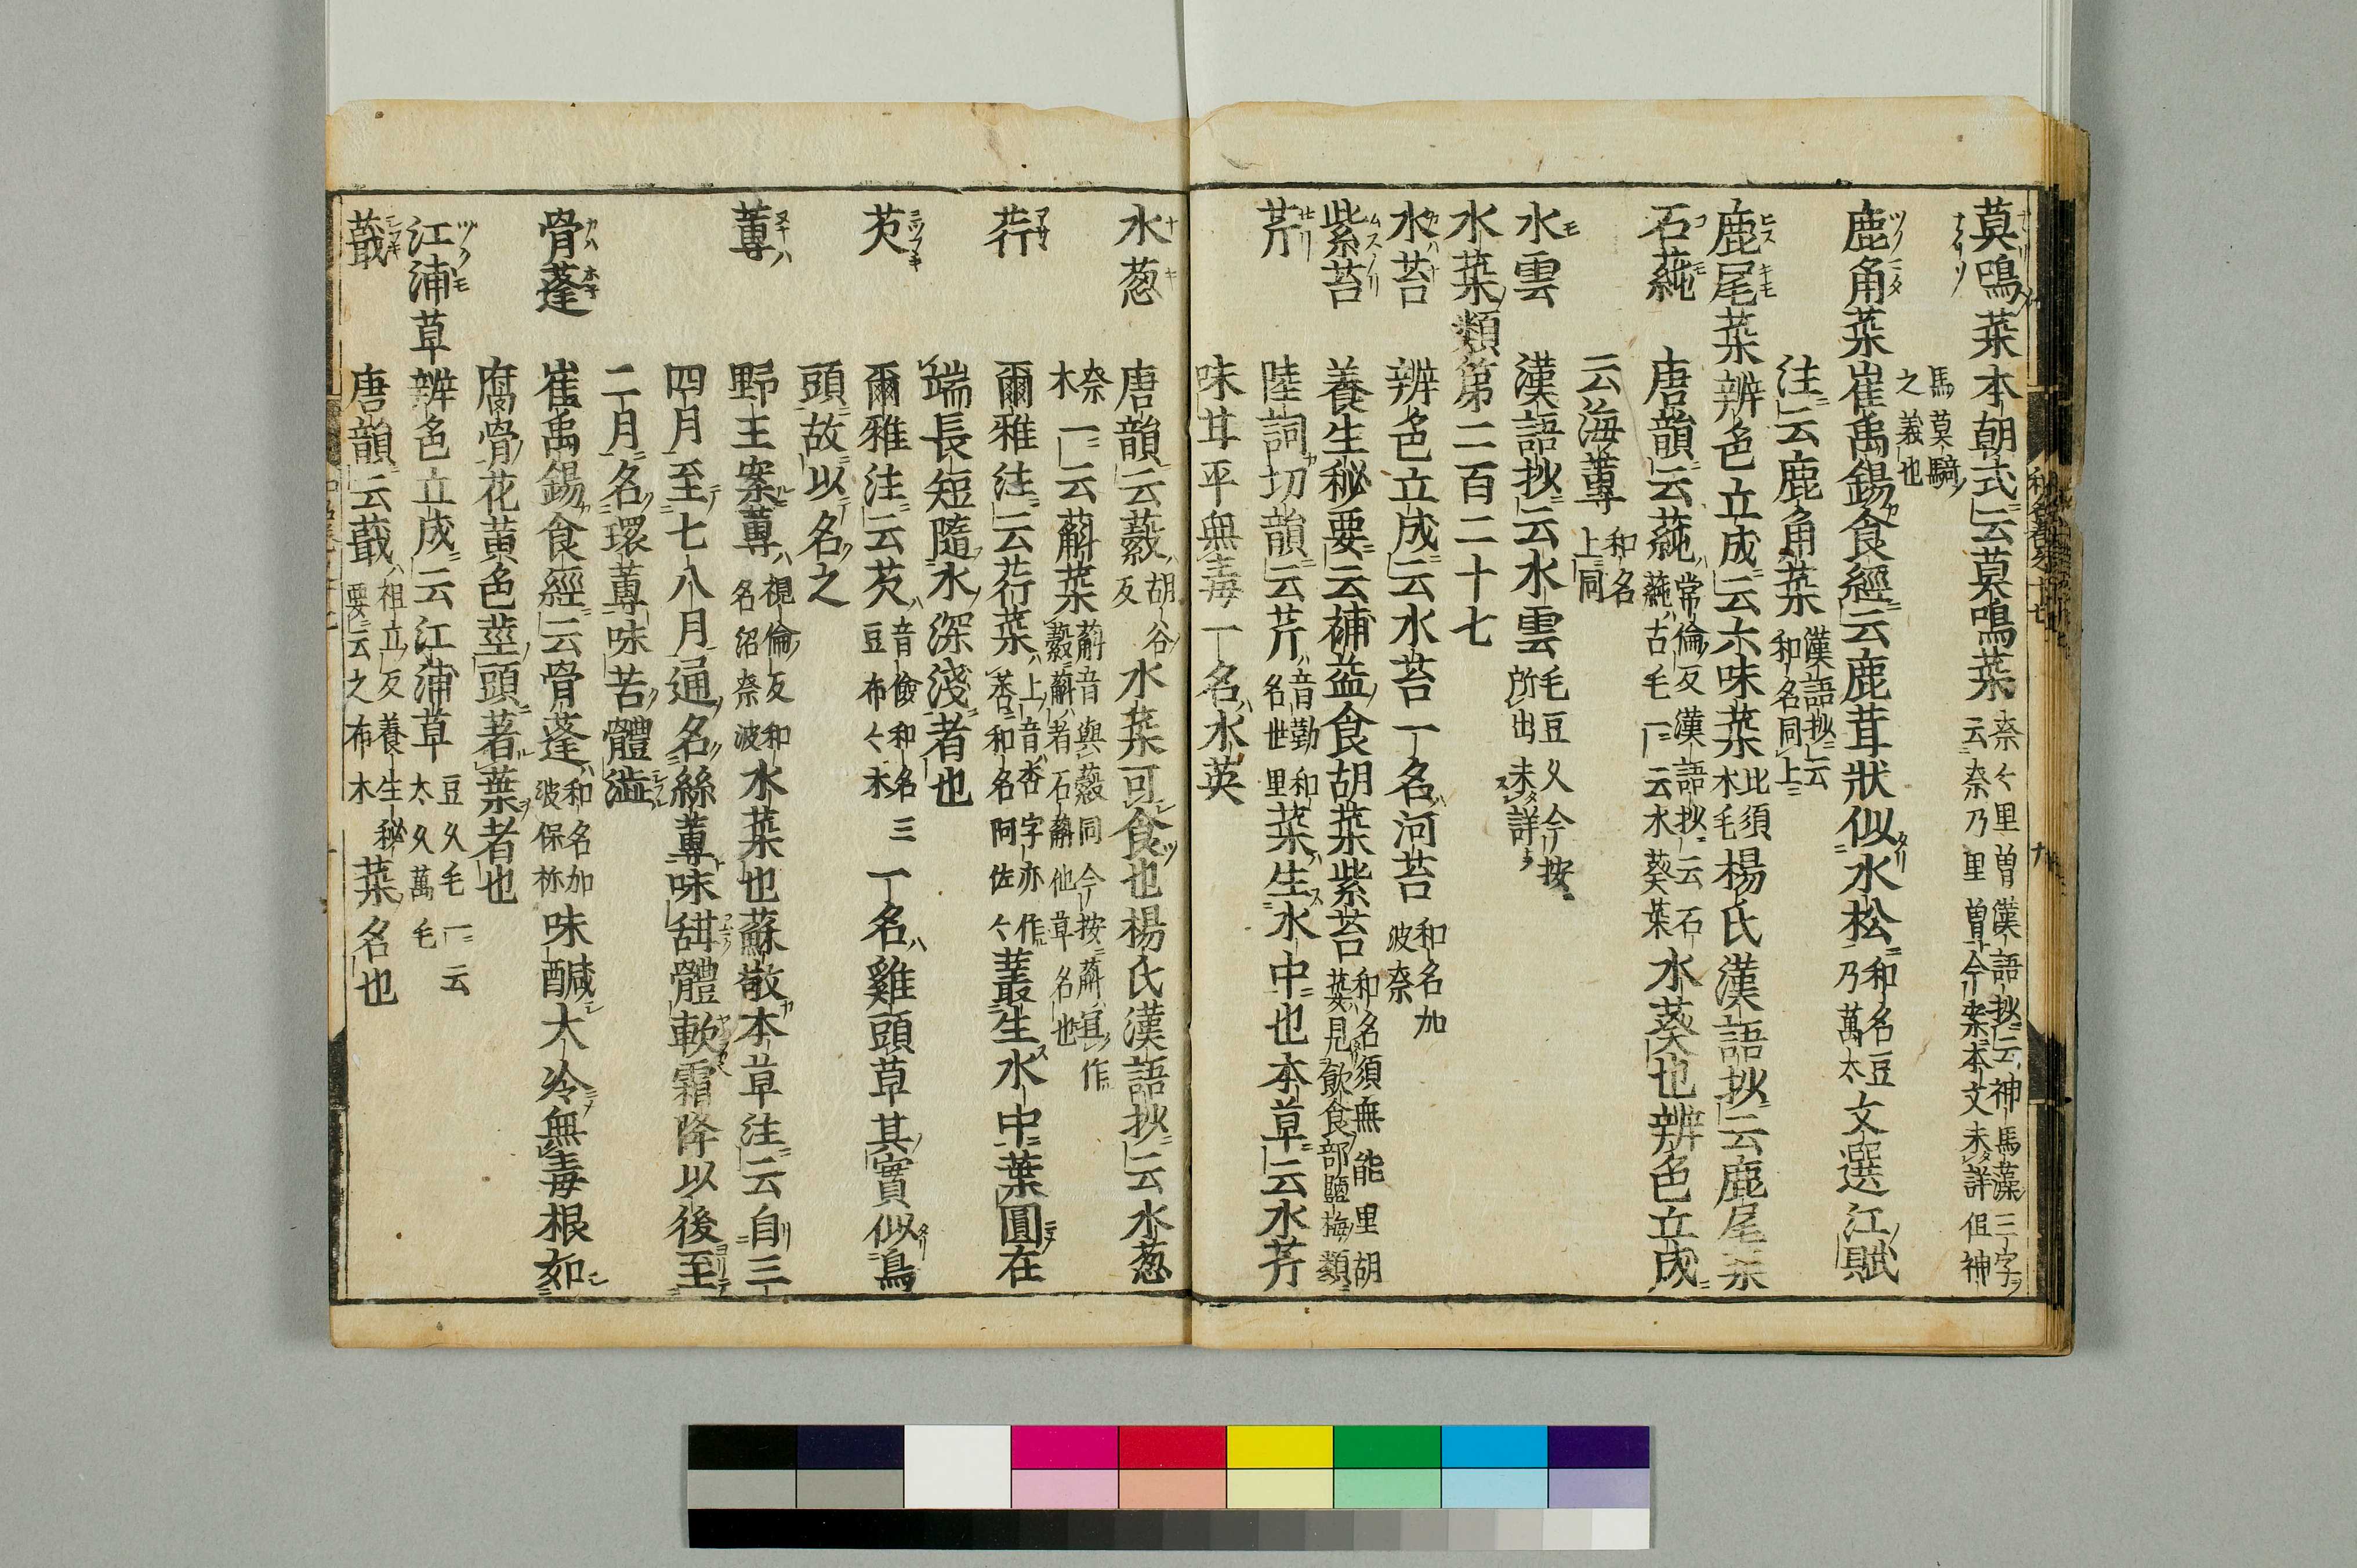 莫鳴菜 本朝式云莫鳴菜 奈々里曽漢語抄云神馬藻三字 云奈乃里曽今案本文未詳但神
馬莫騎之義也
鹿角菜 崔禹錫食經云鹿茸狀似水松 和名豆乃萬太 文選江賦
注云鹿角菜 漢語抄云和名同上
鹿尾菜 辨色立成云六味菜 比須木毛 楊氏漢語抄云鹿尾菜
石蓴 唐韻云蓴 常倫反漢語抄云石蓴古毛一云水葵菜 水葵也辨色立成
云海蓴 和名上同
水雲 漢語抄云水雲 毛豆久今按所出未詳
水菜類第二百二十七
水苔 辨色立成云水苔一名河苔 和名加波奈
紫苔 養生秘要云補益食胡菜紫苔 和名須無能里胡菜見飲食部鹽梅類
芹 陸詞切韻云芹 音勤和名世里 菜生水中也本草云水芹
味甘平無毒一名水英
水葱 唐韻云蔛 胡谷反 水菜可食也楊氏漢語抄云水葱
奈木 一云蔛菜 音與蔛同今按宜作 者石他草名也
荇 爾雅注云荇菜 上音杏字亦作莕和名阿佐々 叢生水中葉圓在
端長短隨水深淺者也
芡 爾雅注云芡 音儉和名三豆布々木 一名雞頭草其實似鳥
頭故以名之
蓴 野王案蓴 視倫反和名沼奈波 水菜也蘇敬本草注云自三
四月至七八月通名絲蓴味甜體軟霜降以後至
二月名環蓴味苦體澁
骨蓬 崔禹錫食經云骨蓬 和名加波保祢 味鹹大冷無毒根如
腐骨花黃色莖頭著葉者也
江浦草 辨色立成云江浦草 豆久毛一云太久萬毛
蕺 唐韻云蕺 祖立反養生秘要云之布木 菜名也